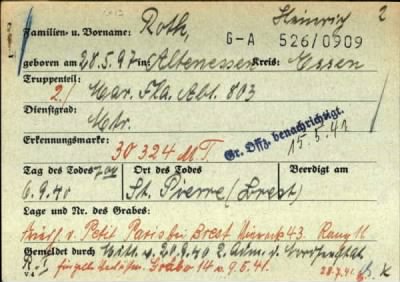 Familien- u. Vorname: Roth, Heinrich 2
G-A 526/0909
geboren am 28.5.97 in Altenessen Kreis: Essen
Truppenteil:
2./ Mar. Fla. Abt. 803
Dienstgrad:
Mtr.
Gr. Offz. benachrichtigt.
15.5.41
Erkennungsmarke:
30 324 M T.
Tag des Todes Ort des Todes Beerdigt am
6.9.40 St. Pierre (Brest)
Lage und Nr. des Grabes:
v. Petit Paris bei Brest 43. Rang 11
Gemeldet durch Mitt. v. 20.9.40 2. Adm. d.
Grabe 14 v. 9.5.41. 28.7.41 K